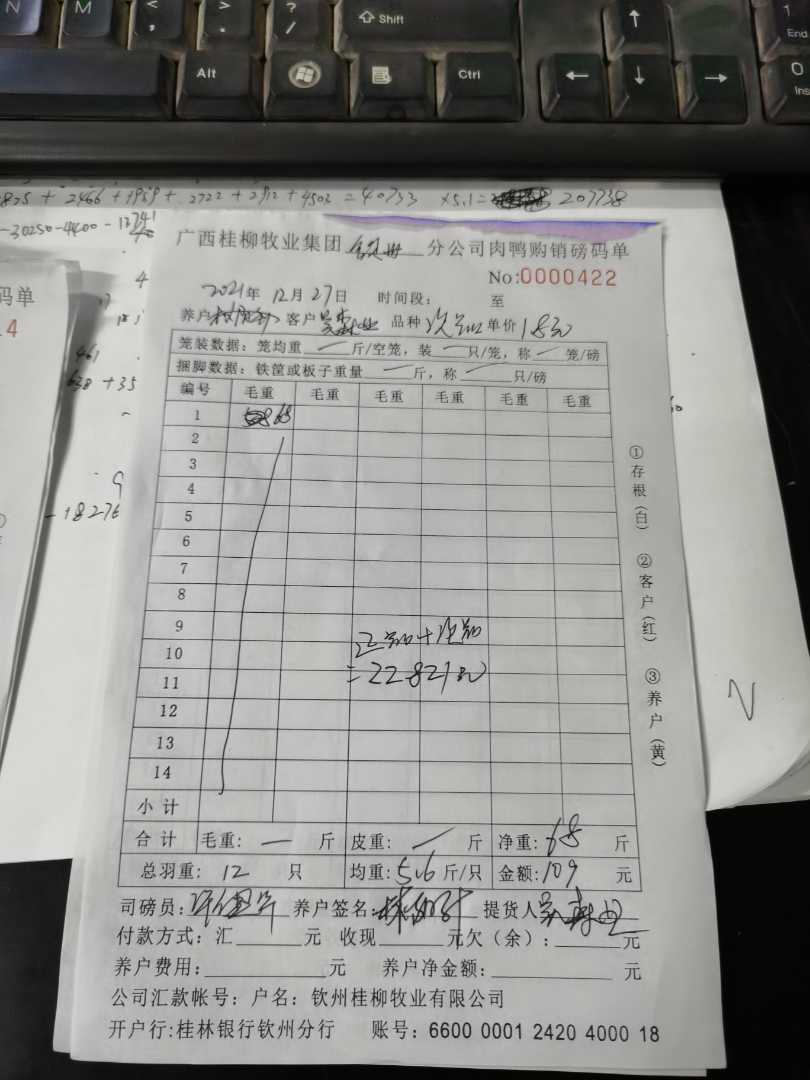 N M < > ? /
Shift
1 End
Alt Ctrl
0 Ins
+ 2466 + 1959 + 2722 + 2912 + 4503 = 40733 ×5.1= 207738
-30250-4400-
461
638 +35
-18276
码单
4
广西桂柳牧业集团 钦州 分公司肉鸭购销磅码单
No:0000422
2021年 12月 27日 时间段: 至
养户 客户 品种 次品 单价
笼装数据: 笼均重 — 斤/空笼, 装 — 只/笼, 称 — 笼/磅
捆脚数据: 铁筐或板子重量 — 斤, 称 — 只/磅
编号 毛重 毛重 毛重 毛重 毛重 毛重
1 68
2
3
4
5
6
7
8
9
10
11
12
13
14
正品+次品
=22821元
小计
合计 毛重: — 斤 皮重: — 斤 净重: 68 斤
总羽重: 12 只 均重: 5.6 斤/只 金额: 109 元
司磅员: 养户签名: 提货人
付款方式: 汇 元 收现 元欠(余): 元
养户费用: 元 养户净金额: 元
公司汇款帐号: 户名: 钦州桂柳牧业有限公司
开户行:桂林银行钦州分行 账号: 6600 0001 2420 4000 18
①存根(白) ②客户(红) ③养户(黄)